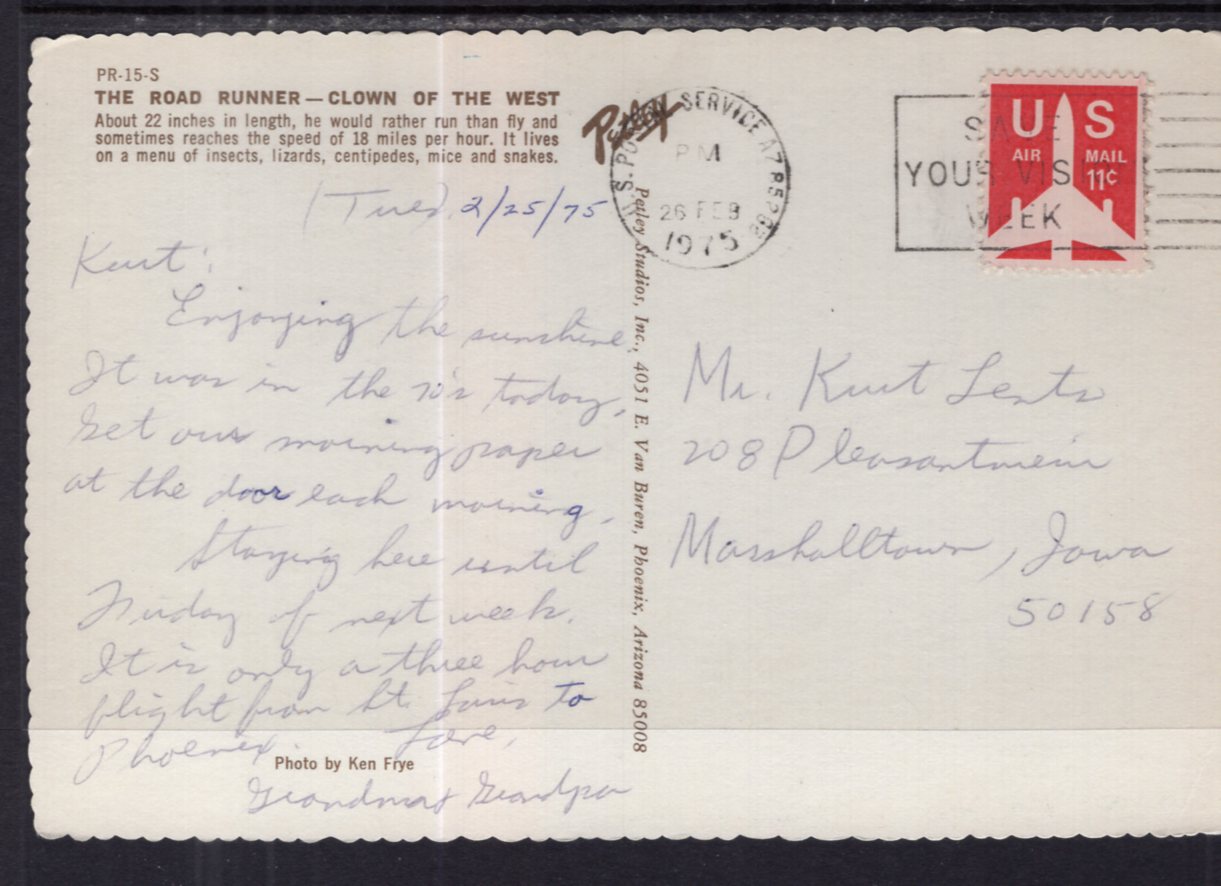 PR-15-S
THE ROAD RUNNER — CLOWN OF THE WEST
About 22 inches in length, he would rather run than fly and
sometimes reaches the speed of 18 miles per hour. It lives
on a menu of insects, lizards, centipedes, mice and snakes.
Petley
U.S. POSTAL SERVICE AZ 852
PM
26 FEB
1975
SAVE
YOUR VIS
WEEK
US
AIR MAIL
11¢
Tues. 2/25/75
Kurt:
Enjoying the sunshine.
It was in the 70's today.
Get our morning paper
at the door each morning.
Staying here until
Friday of next week.
It is only a three hour
flight from St. Louis to
Phoenix. Love,
Grandma & Grandpa
Photo by Ken Frye
Petley Studios, Inc., 4051 E. Van Buren, Phoenix, Arizona 85008
Mr. Kurt Lents
208 Pleasantview
Marshalltown, Iowa
50158